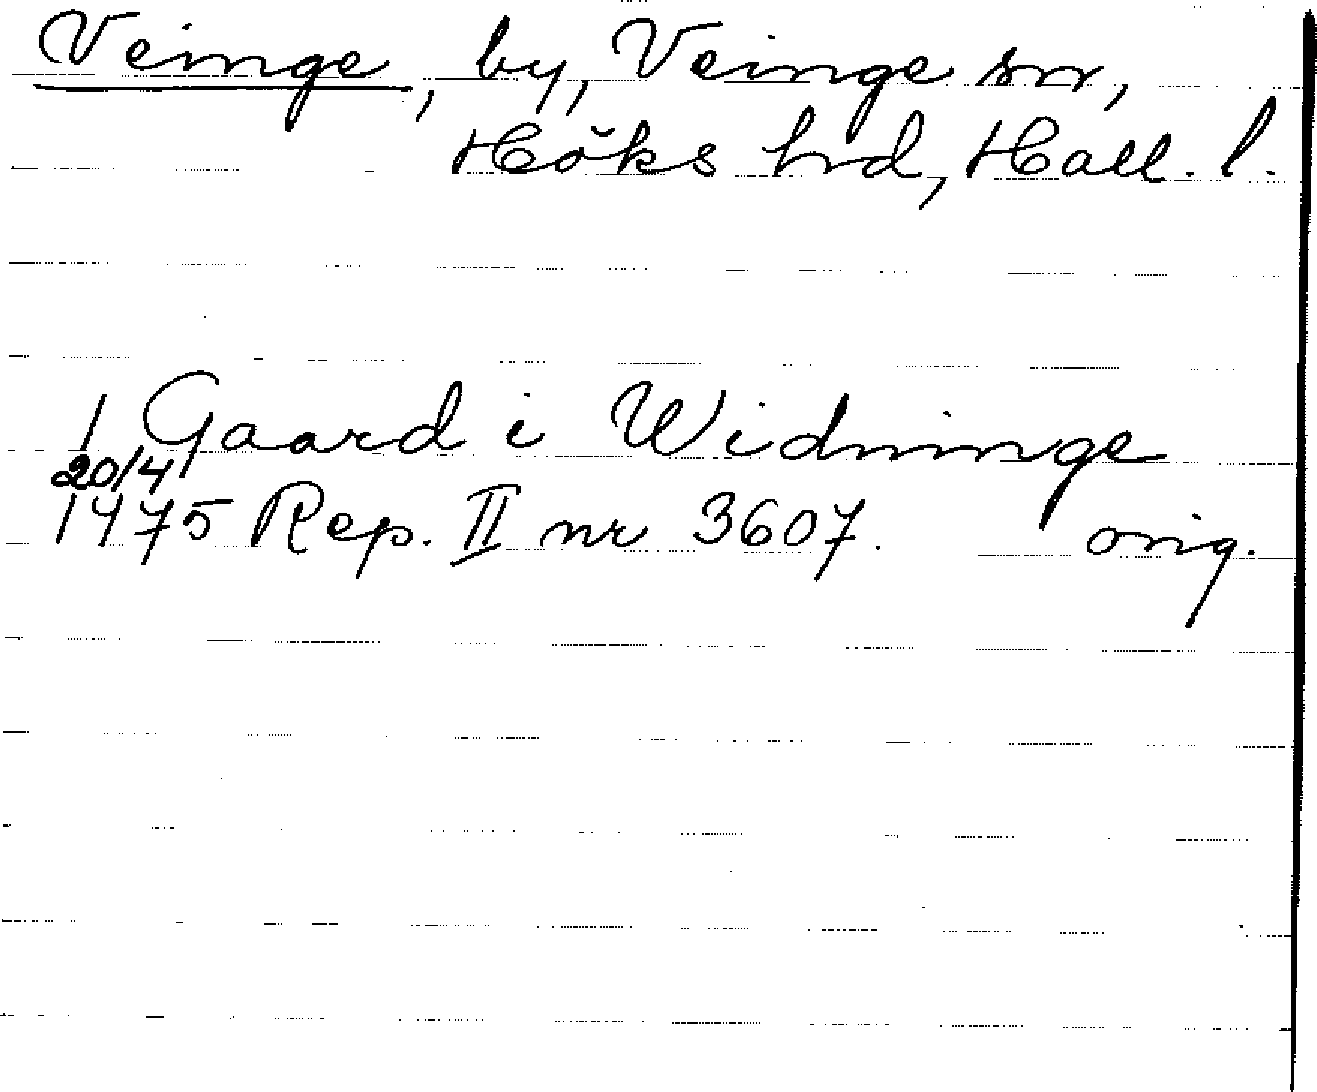 Veinge, by, Veinge sn,
Höks hrd, Hall. l.
1 Gaard i Widninge
20/4
1475 Rep. II nr 3607. orig.